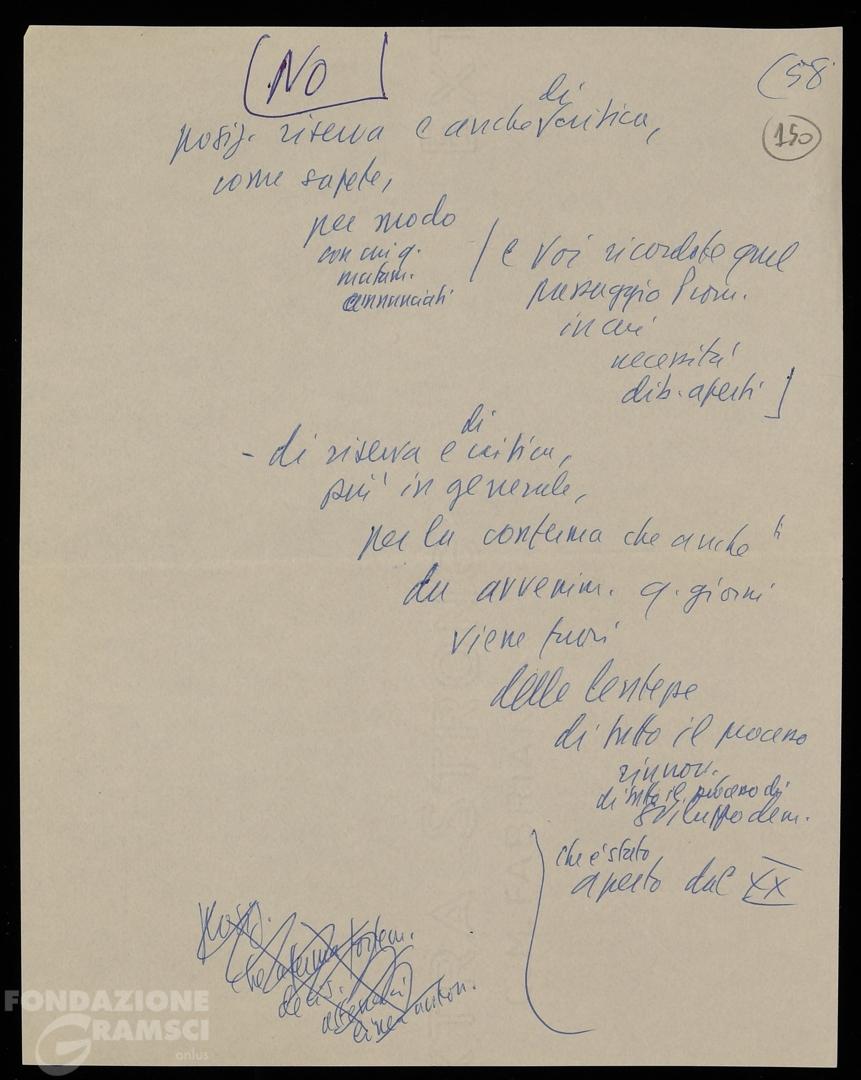 (NO]
(58
150
di
posiz. riserva e anche √ critica,
come sapete,
per modo
con cui q.
mutam.
annunciati
/ e voi ricordate quel
passaggio Prom.
in cui
necessità
dib. aperti ]
di
- di riserva e critica,
più in generale,
per la conferma che anche
da avvenim. q. giorni
viene fuori
delle lentezze
di tutto il processo
rinnov.
di tutto il processo di
sviluppo dem.
che è stato
aperto dal XX
Posiz.
che afferma
decis.
linea
FONDAZIONE
GRAMSCI
onlus